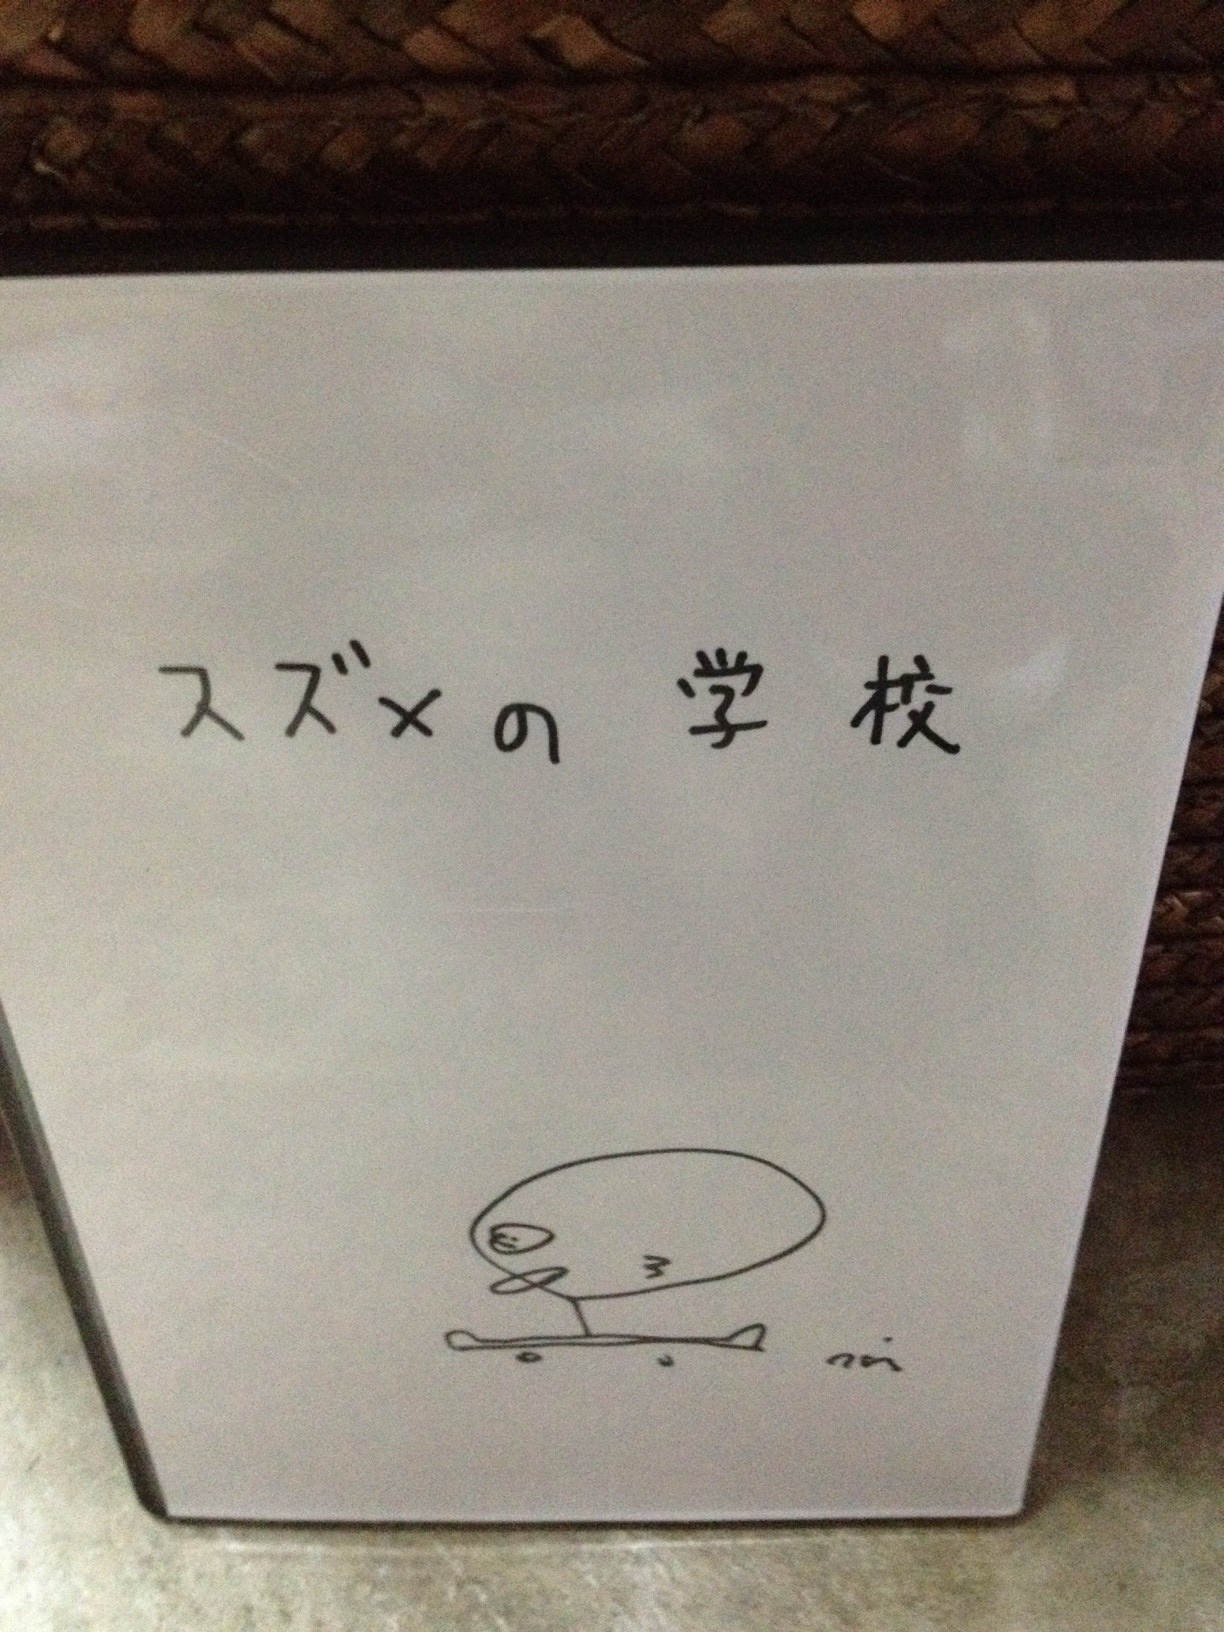 スズメの 学校